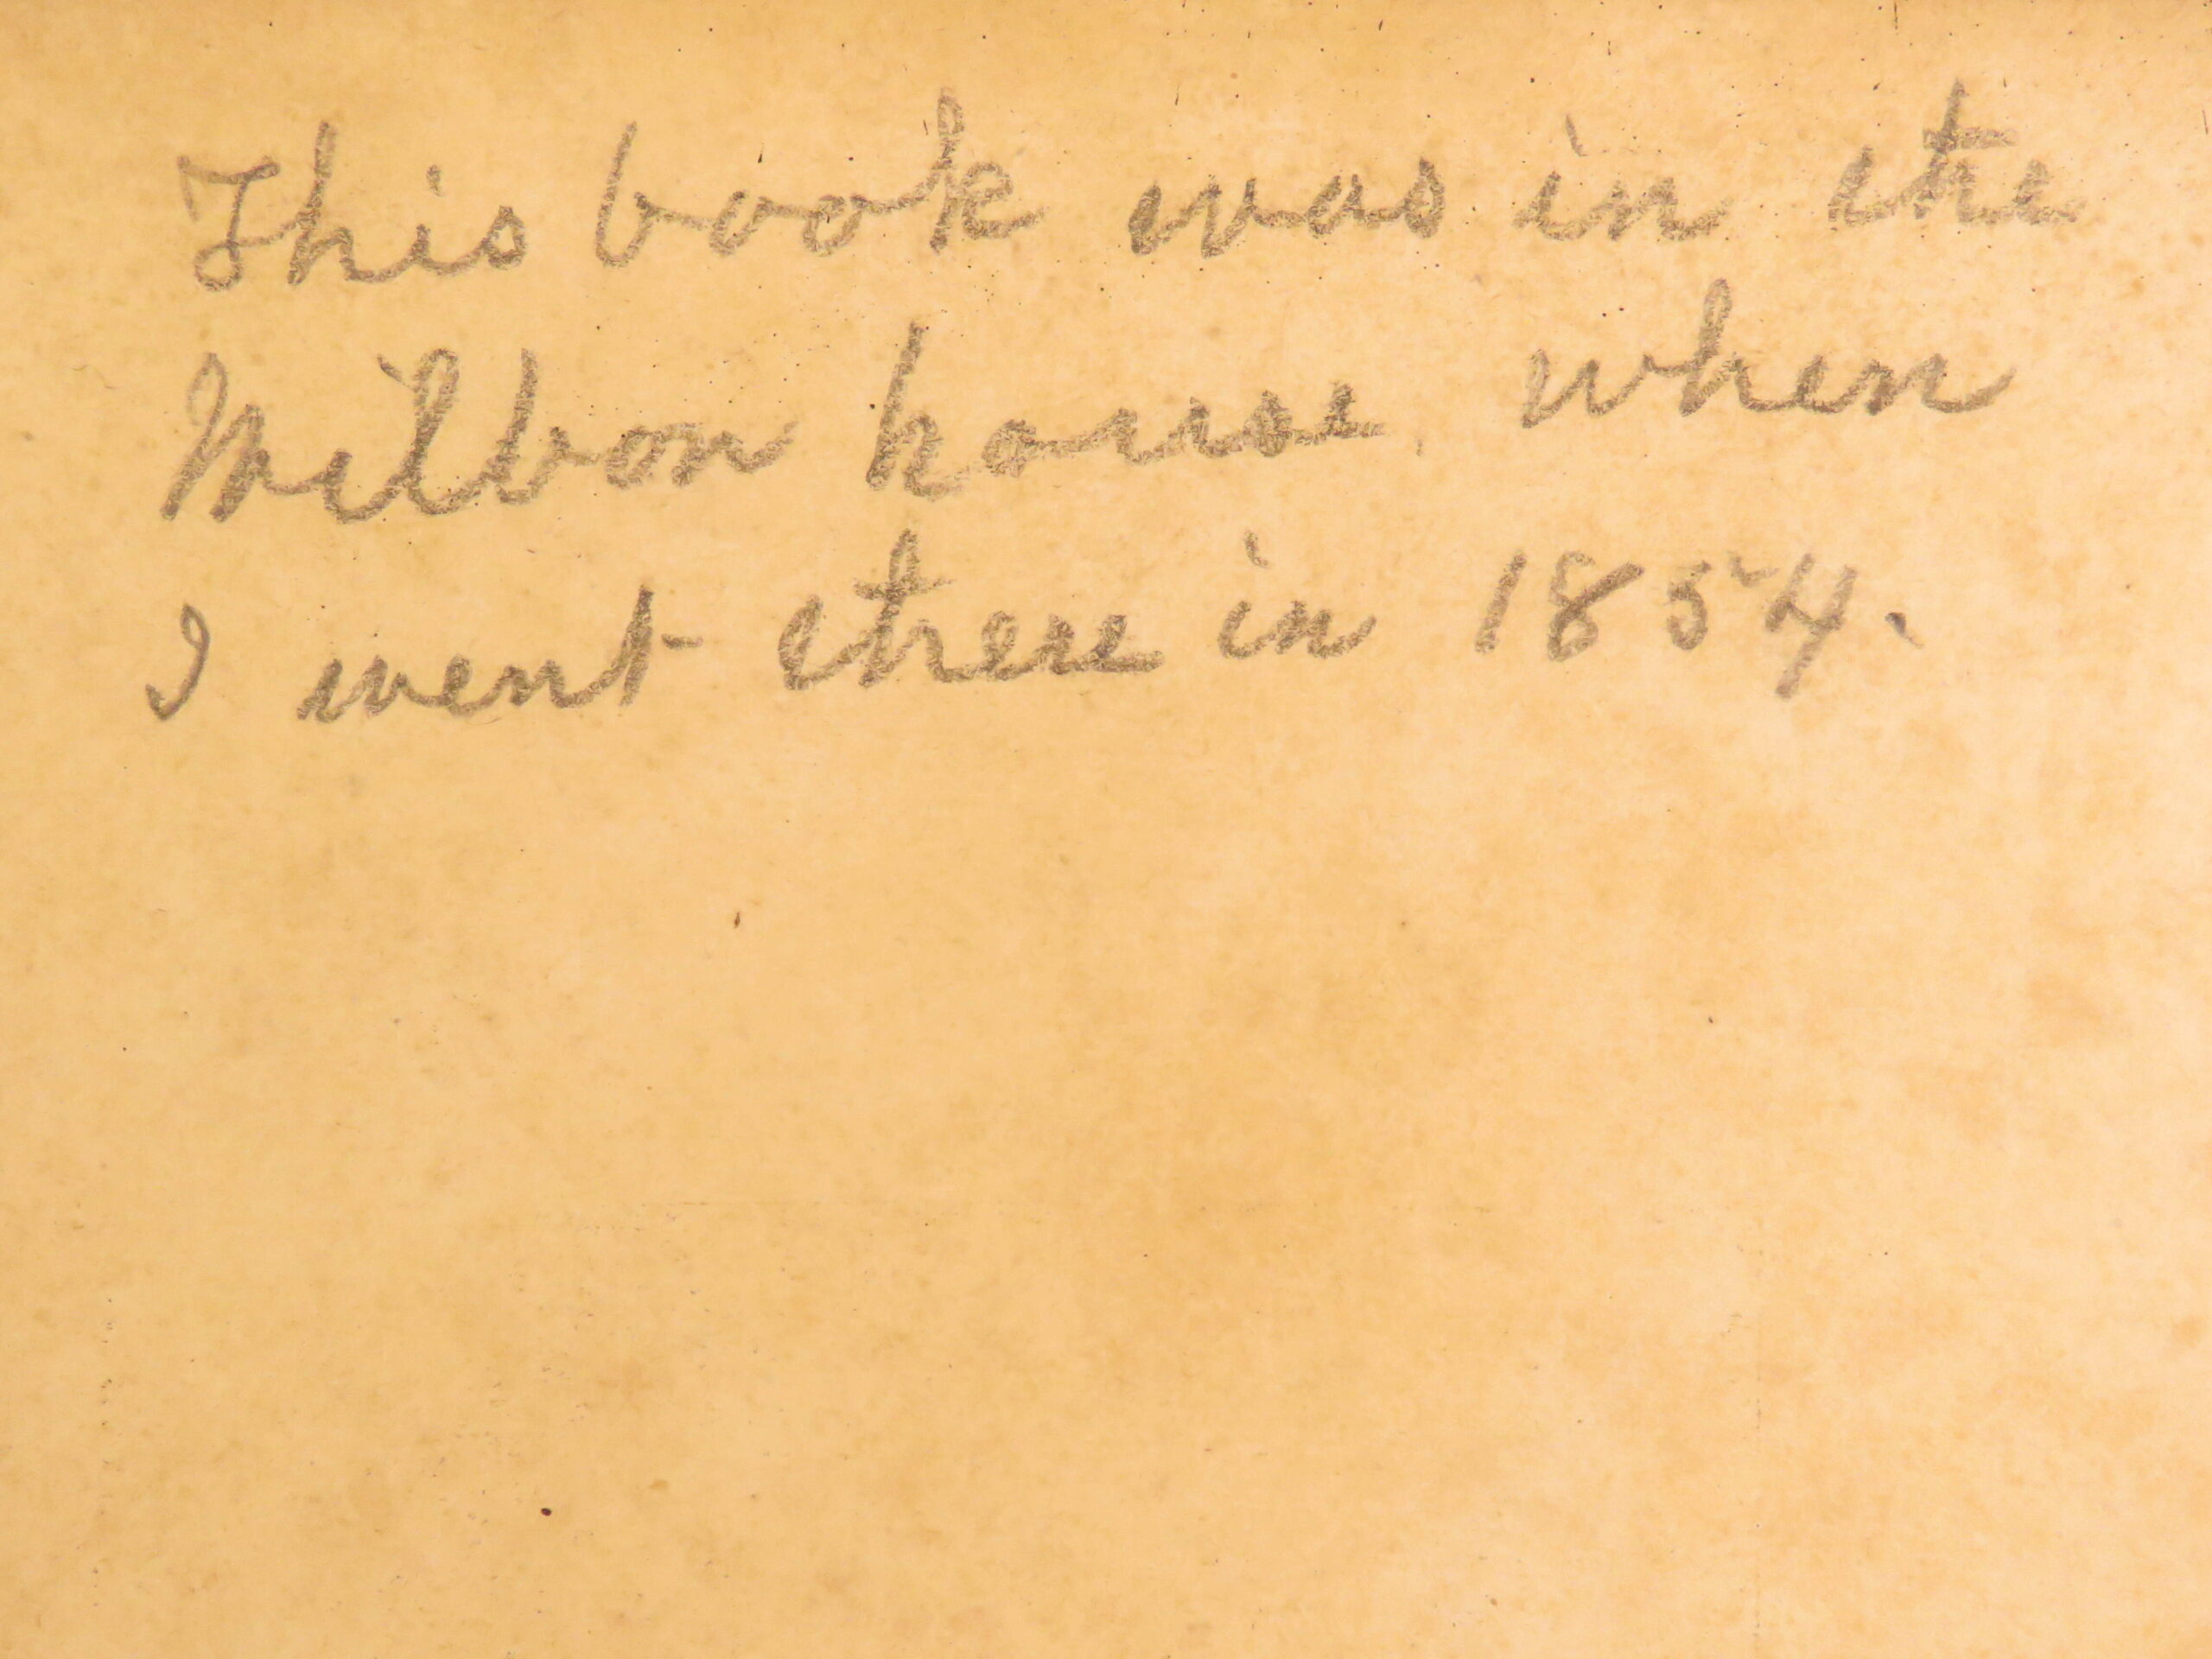 This book was in the
Milbon house, when
I went there in 1854.